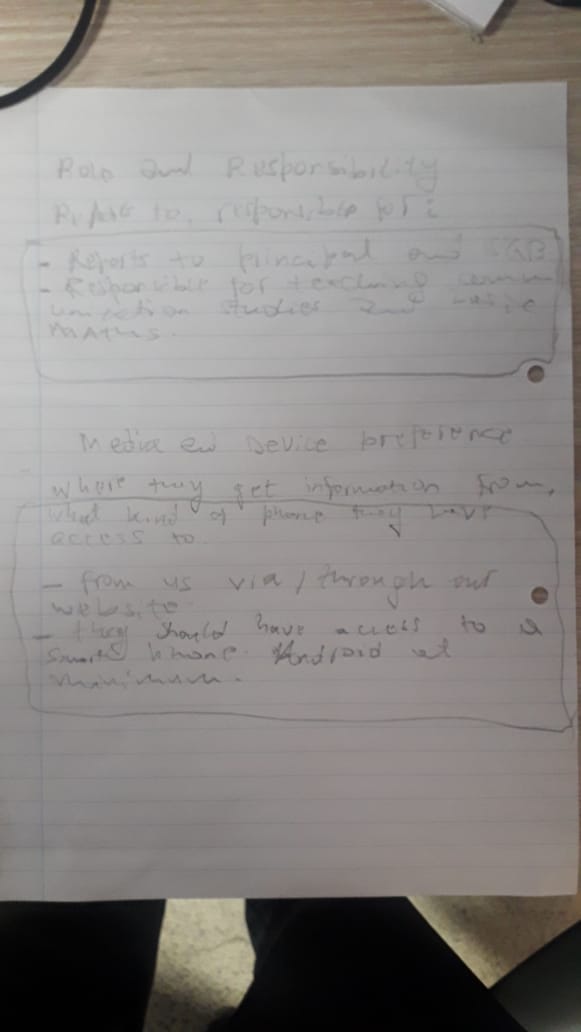 Role and Responsibility
to, responsible for:
- Reports to principal and SGB
- Responsible for teaching commu
nication studies and basic
maths.
Media and Device preference
where they get information from,
what kind of phone they have
access to.
- from us via / through our
website
- they should have access to a
smart phone. Android at
minimum.